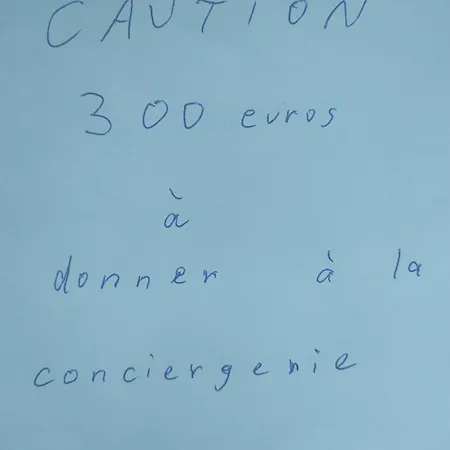 CAUTION
300 euros
à
donner à la
conciergenie